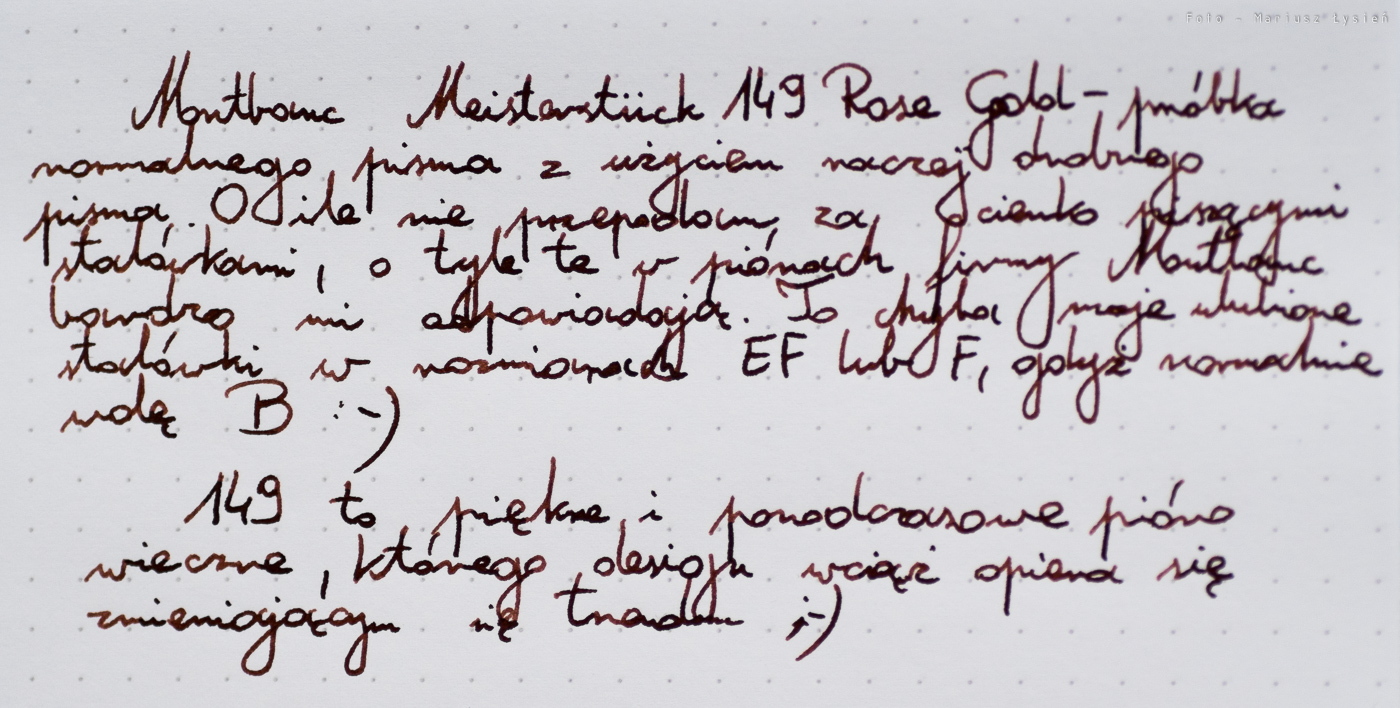 Foto - Mariusz Łysień
Montblanc Meisterstück 149 Rose Gold - próbka
normalnego pisma z użyciem raczej drobnego
pisma. O ile nie przepadam za cienko piszącymi
stalówkami, o tyle te w piórach firmy Montblanc
bardzo mi odpowiadają. To chyba moje ulubione
stalówki w rozmiarach EF lub F, gdyż normalnie
wolę B :-)
149 to piękne i ponadczasowe pióro
wieczne, którego design wciąż opiera się
zmieniającym się trendom ;-)